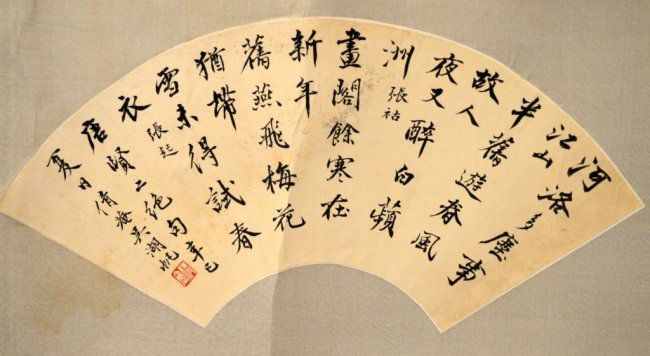 河洛多塵事
江山
半舊遊春風
故人
夜又醉白蘋
洲 張祜
畫閣餘寒在
新年
舊燕飛梅花
猶帶
雪未得試春
衣 張起
唐賢二絕句辛巳
夏日倩盦吳湖帆